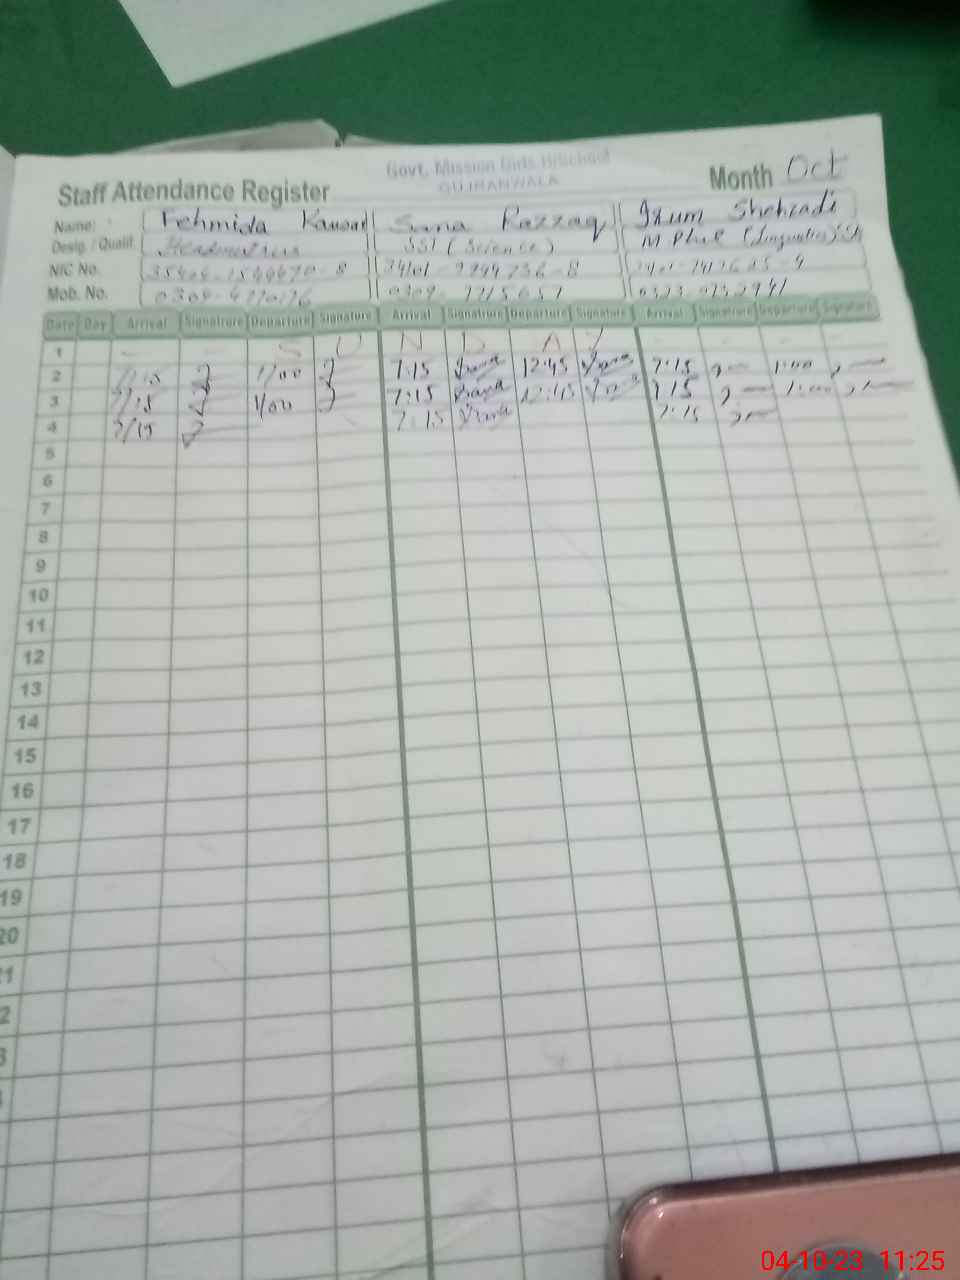 Govt. Mission Girls H/School
GUJRANWALA
Staff Attendance Register
Month Oct
Name: Fehmida Kausar Sana Razzaq Irum Shehzadi
Desig. / Qualif. Headmistress SST (Science) M Phil (Linguistics)
NIC No.
Mob. No.
Date Day Arrival Signatrure Departure Signature Arrival Signatrure Departure Signature Arrival Signatrure Departure Signature
1 S U N D A Y
2 7/15 1/00 7:15 Sana 12:45 Sana 7:15 1:00
3 7/15 1/00 7:15 Sana 12:45 Sana 7:15 1:00
4 7/15 7:15 Sana 7:15
5
6
7
8
9
10
11
12
13
14
15
16
17
18
19
20
04-10-23 11:25